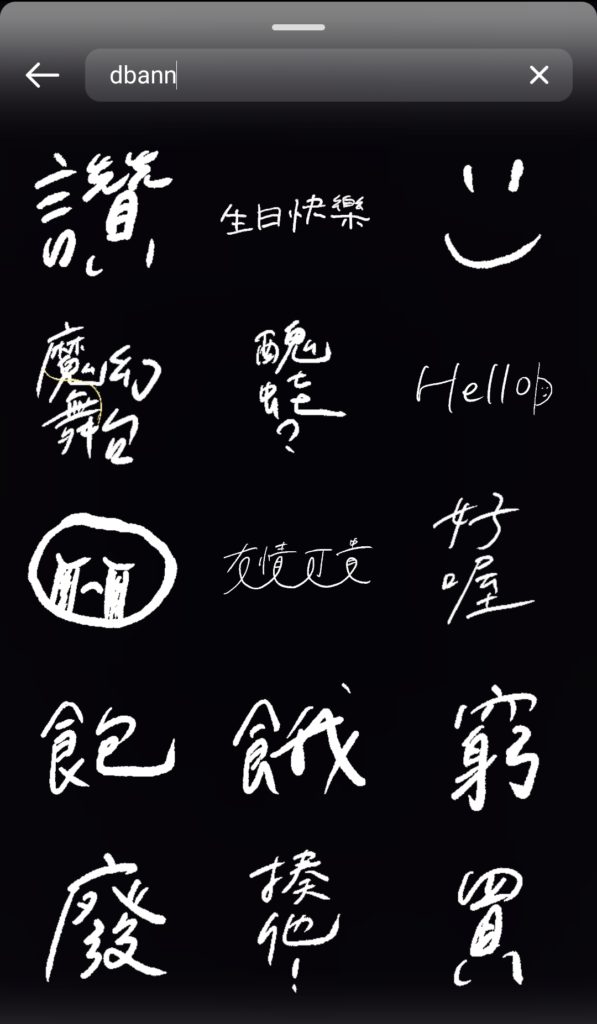 dbann
讚
生日快樂
魔幻
舞台
醜
蛙
?
Hello
友情可貴
好
喔
飽
餓
窮
發
揍
他
!
買